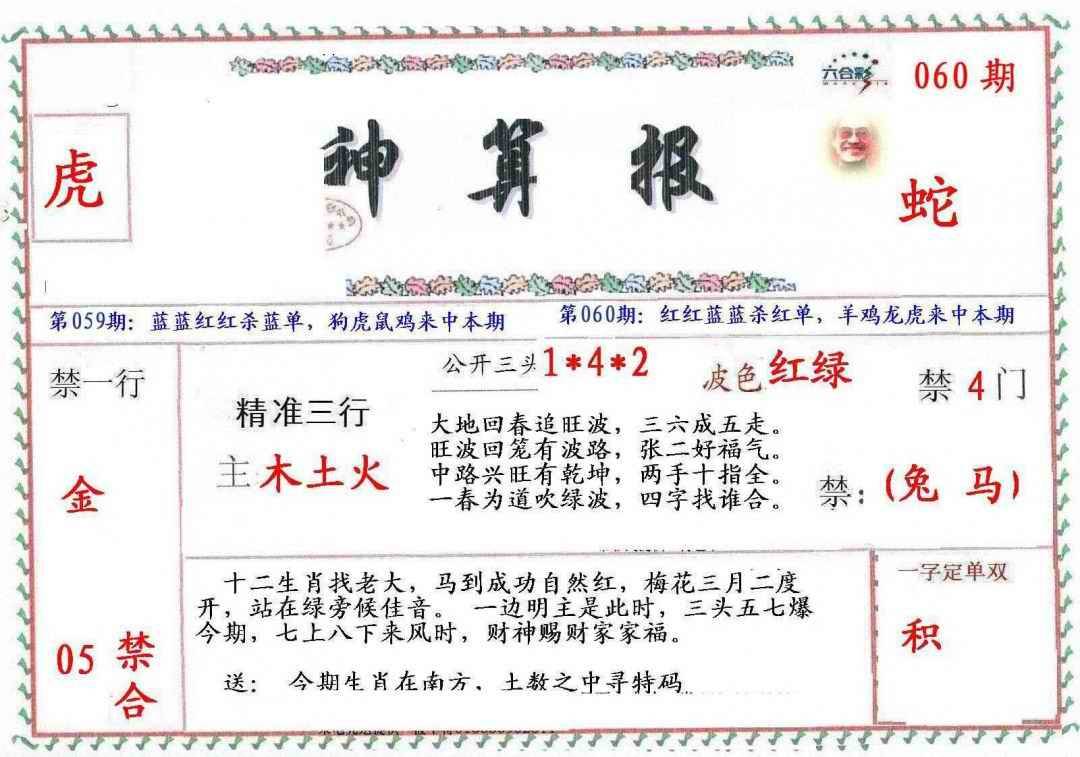 六合彩
060 期
虎
神算报
蛇
第059期：蓝蓝红红杀蓝单，狗虎鼠鸡来中本期
第060期：红红蓝蓝杀红单，羊鸡龙虎来中本期
禁一行
金
05 禁合
精准三行
主 木土火
公开三头 1*4*2
波色 红绿
大地回春追旺波，三六成五走。
旺波回笼有波路，张二好福气。
中路兴旺有乾坤，两手十指全。
一春为道吹绿波，四字找谁合。
禁 4 门
禁：(兔 马)
十二生肖找老大，马到成功自然红，梅花三月二度
开，站在绿旁候佳音。 一边明主是此时，三头五七爆
今期，七上八下来风时，财神赐财家家福。
送： 今期生肖在南方，土数之中寻特码
一字定单双
积